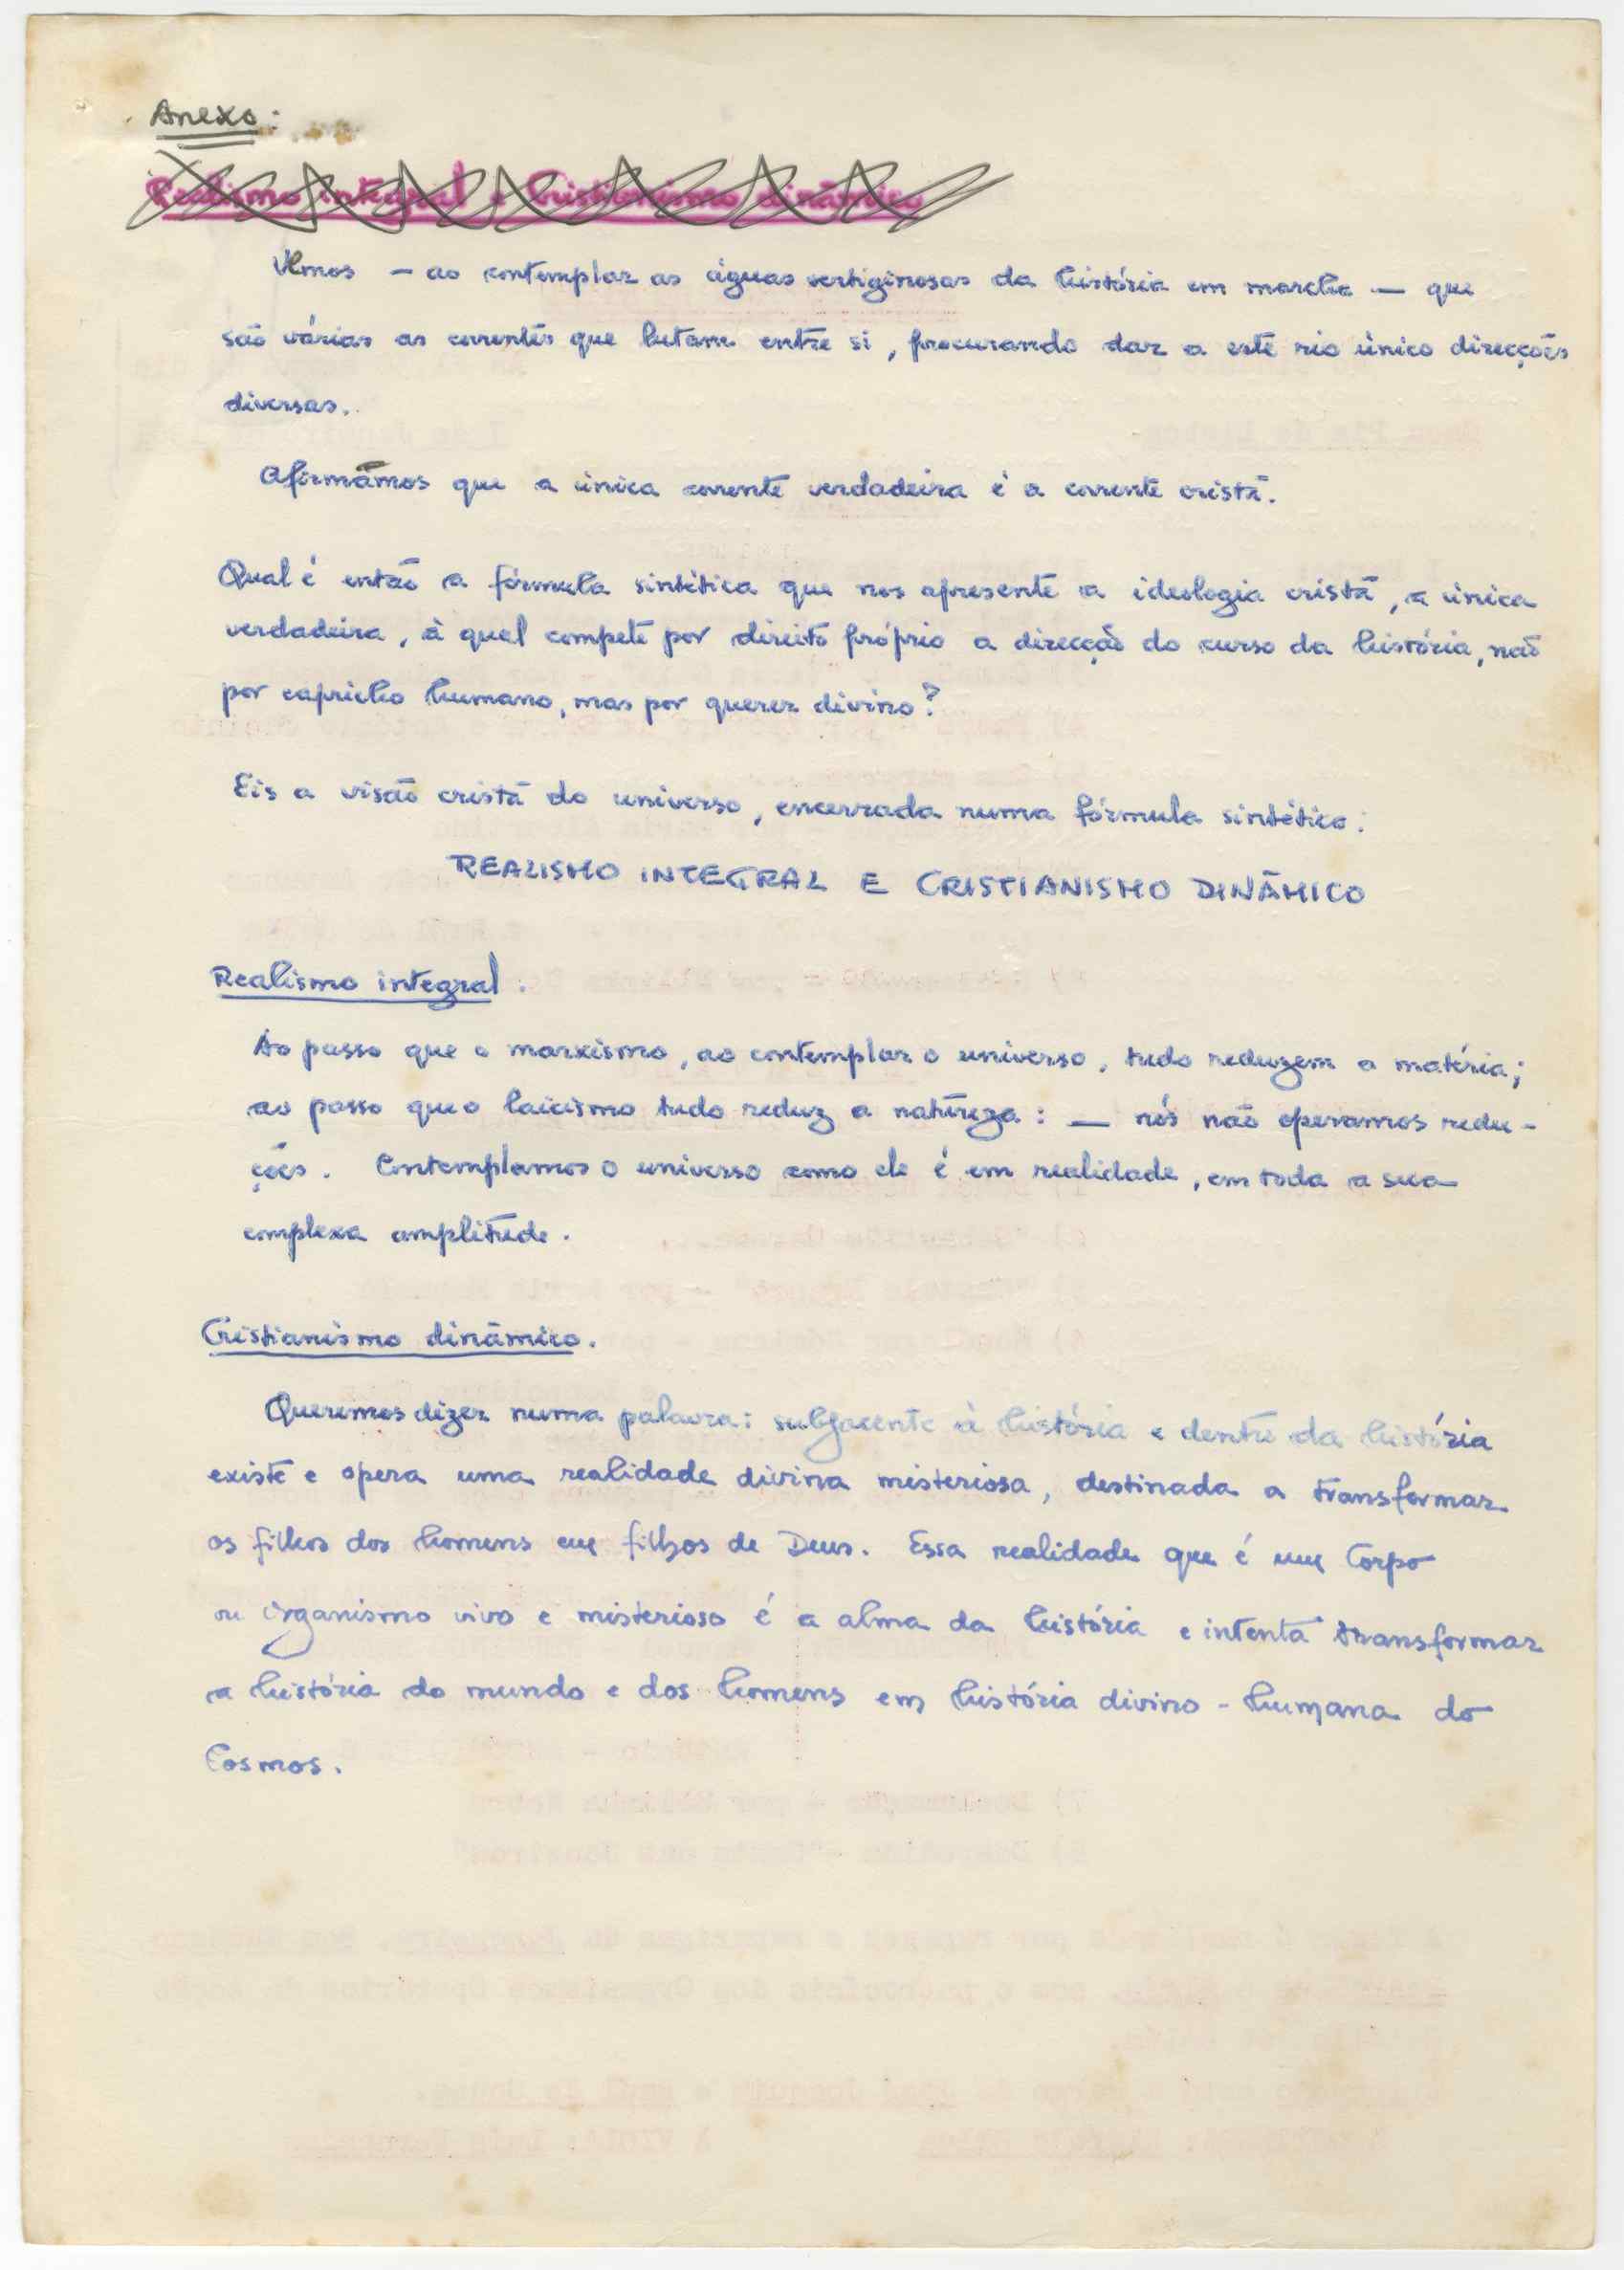 Anexo:
Realismo integral e Cristianismo dinâmico
Vemos — ao contemplar as águas vertiginosas da história em marcha — que
são várias as correntes que lutam entre si, procurando dar a este rio único direcções
diversas.
Afirmâmos que a única corrente verdadeira é a corrente cristã.
Qual é então a fórmula sintética que nos apresente a ideologia cristã, a única
verdadeira, à qual compete por direito próprio a direcção do curso da história, não
por capricho humano, mas por querer divino?
Eis a visão cristã do universo, encerrada numa fórmula sintética:
REALISMO INTEGRAL E CRISTIANISMO DINÂMICO
Realismo integral.
Ao passo que o marxismo, ao contemplar o universo, tudo reduzem a matéria;
ao passo que o laicismo tudo reduz a natureza: — nós não operamos redu-
ções. Contemplamos o universo como ele é em realidade, em toda a sua
complexa amplitude.
Cristianismo dinâmico.
Queremos dizer numa palavra: subjacente à história e dentro da história
existe e opera uma realidade divina misteriosa, destinada a transformar
os filhos dos homens em filhos de Deus. Essa realidade que é um Corpo
ou organismo vivo e misterioso é a alma da história e intenta transformar
a história do mundo e dos homens em história divino-humana do
Cosmos.